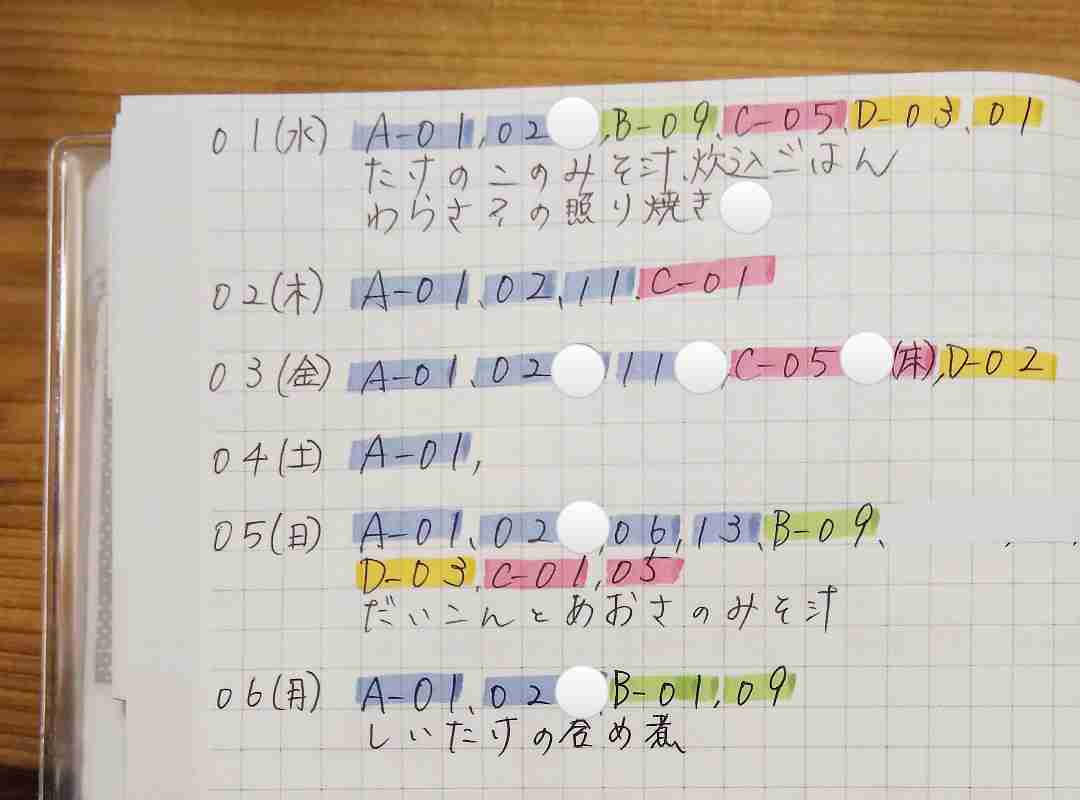 01(水) A-01,02,B-09、C-05、D-03、01
たけのこのみそ汁、炊込ごはん
わらさ?の照り焼き
02(木) A-01、02、11、C-01
03(金) A-01、02 11,C-05(床),D-02
04(土) A-01,
05(日) A-01、02,06,13、B-09、
D-03、C-01,05
だいこんとあおさのみそ汁
06(月) A-01、02、B-01,09
しいたけの含め煮